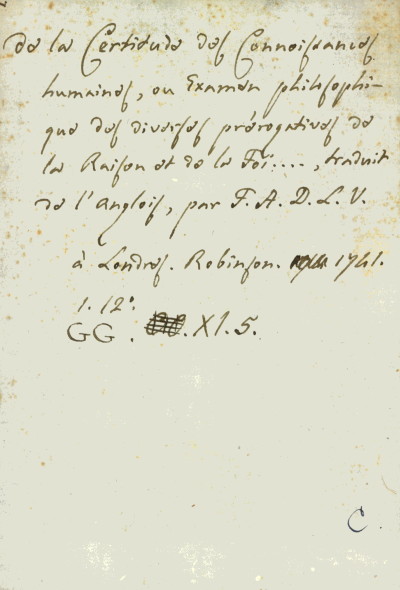 De la Certitude des Connoissances
humaines, ou Examen philosophi-
que des diverses prérogatives de
la Raison et de la Foi...., traduit
de l'Anglois, par F. A. D. L. V.
à Londres. Robinson. 1741.
1. 12°.
GG. XI. 5.
C.